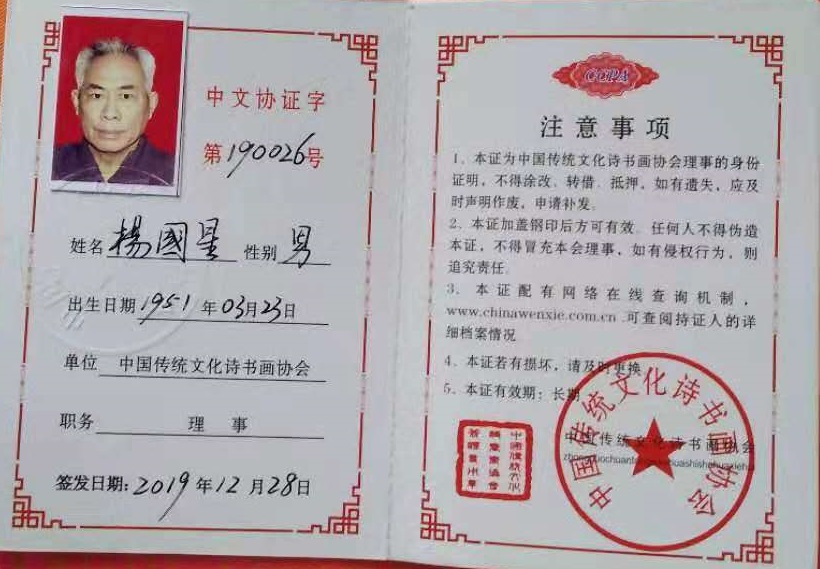 中文协证字
第190026号
姓名 楊國星 性别 男
出生日期 1951年03月23日
单位 中国传统文化诗书画协会
职务 理 事
签发日期:2019年12月28日
CCPA
注意事项
1、本证为中国传统文化诗书画协会理事的身份
证明，不得涂改、转借、抵押，如有遗失，应及
时声明作废，申请补发。
2、本证加盖钢印后方可有效。任何人不得伪造
本证，不得冒充本会理事，如有侵权行为，则
追究责任.
3、本证配有网络在线查询机制，
www.chinawenxie.com.cn .可查阅持证人的详
细档案情况
4、本证若有损坏，请及时更换
5、本证有效期：长期
中国传统文化诗书画协会
中国传统文化诗书画协会